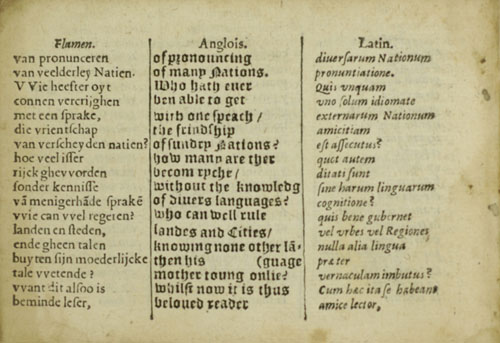 Flamen.
van pronunceren
van veelderley Natien.
VVie heefter oyt
connen vercrijghen
met een sprake,
die vrientschap
van verscheyden natien?
hoe veel isser
rijck ghevvorden
sonder kennisse
vã menigerhãde sprakẽ
vvie can vvel regeren?
landen en steden,
ende gheen talen
buyten sijn moederlijcke
tale vvetende?
vvant dit alsoo is
beminde leser,
Anglois.
of pronouncing
of many Nations.
Who hath ever
ben able to get
with one speach /
the frindship
of sundry Nations?
how many are ther
becom ryche /
without the knowledg
of divers languages?
who can well rule
landes and Cities /
knowing none other lã-
then his (guage
mother toung onlie?
whilst now it is thus
beloued reader
Latin.
diversarum Nationum
pronuntiatione.
Quis vnquam
vno solum idiomate
externarum Nationum
amicitiam
est assecutus?
quot autem
ditati sunt
sine harum linguarum
cognitione?
quis bene gubernet
vel vrbes vel Regiones
nulla alia lingua
præter
vernaculam imbutus?
Cum hæc ita se habeant
amice lector,